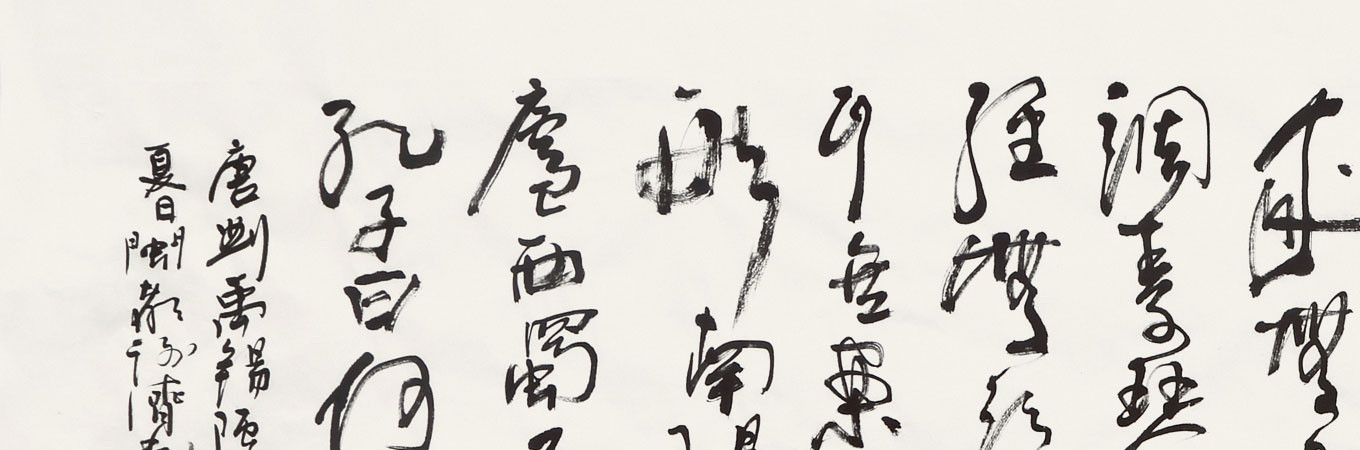 無
調素琴
經無絲
耳無案
形南陽
廬西蜀子
孔子曰何
唐劉禹錫陋
夏日閩